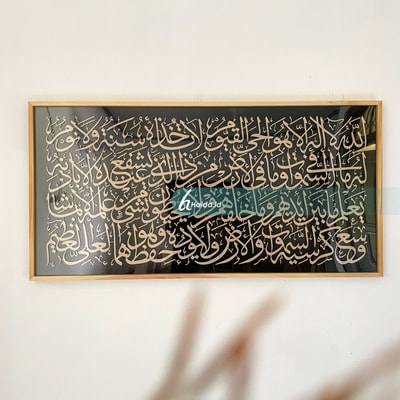 الله لا إله إلا هو الحي القيوم لا تأخذه سنة ولا نوم
له ما في السموات وما في الأرض من ذا الذي يشفع عنده إلا بإذنه
يعلم ما بين أيديهم وما خلفهم ولا يحيطون بشيء من علمه إلا بما شاء
وسع كرسيه السموات والأرض ولا يوده حفظهما وهو العلي العظيم
Haida.id